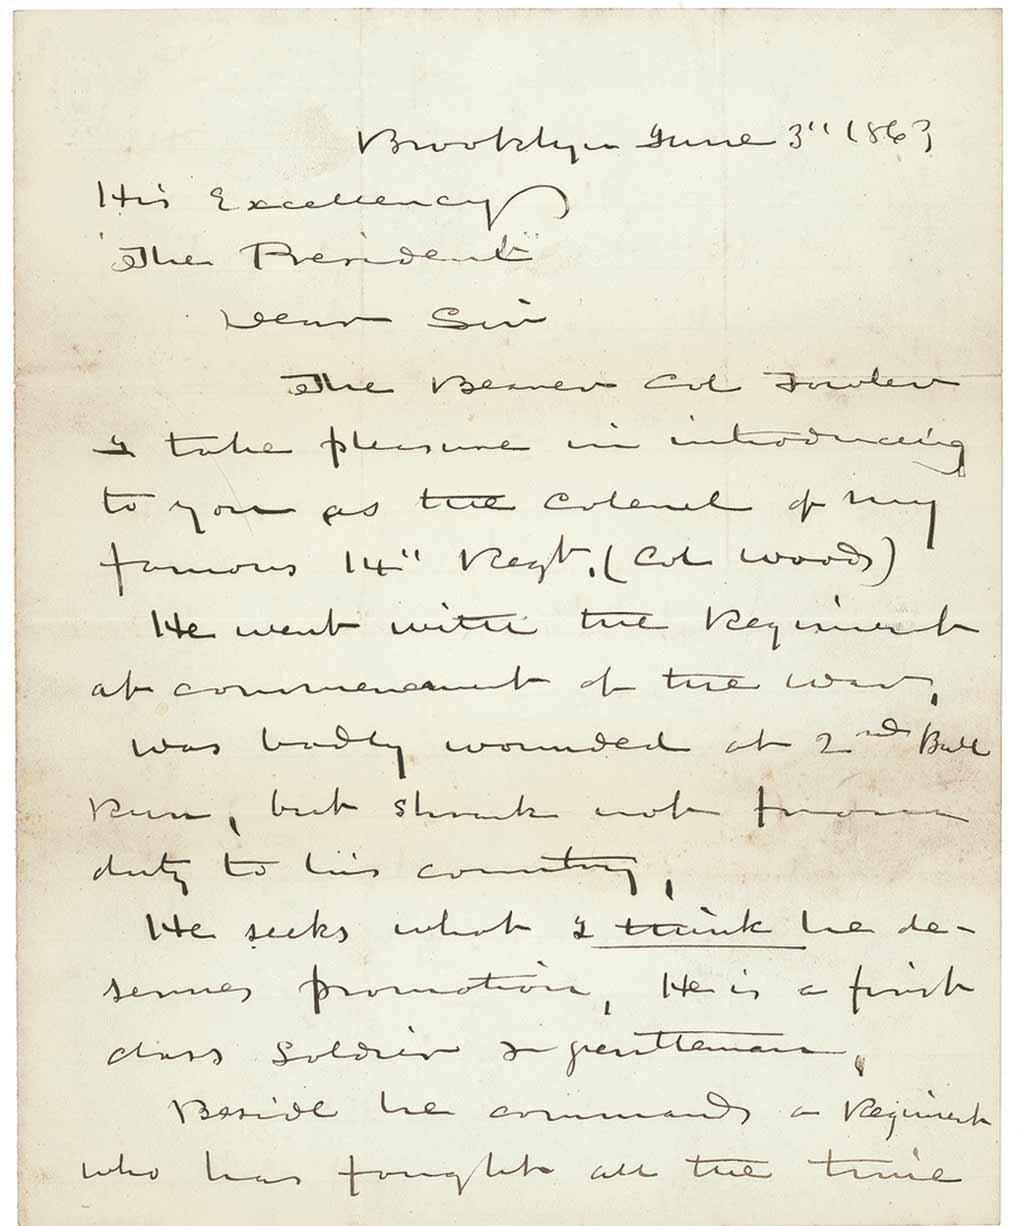 Brooklyn June 3" 1863
His Excellency
"The President"
Dear Sir
The Bearer Col Fowler
I take pleasure in introducing
to you as the Colonel of my
famous 14" Regt. (Col Woods)
He went with the Regiment
at commencement of the war,
was badly wounded at 2nd Bull
Run, but shrunk not from
duty to his country,
He seeks what I think he de-
serves promotion, He is a first
class Soldier & gentleman,
Beside he commands a Regiment
who has fought all the time